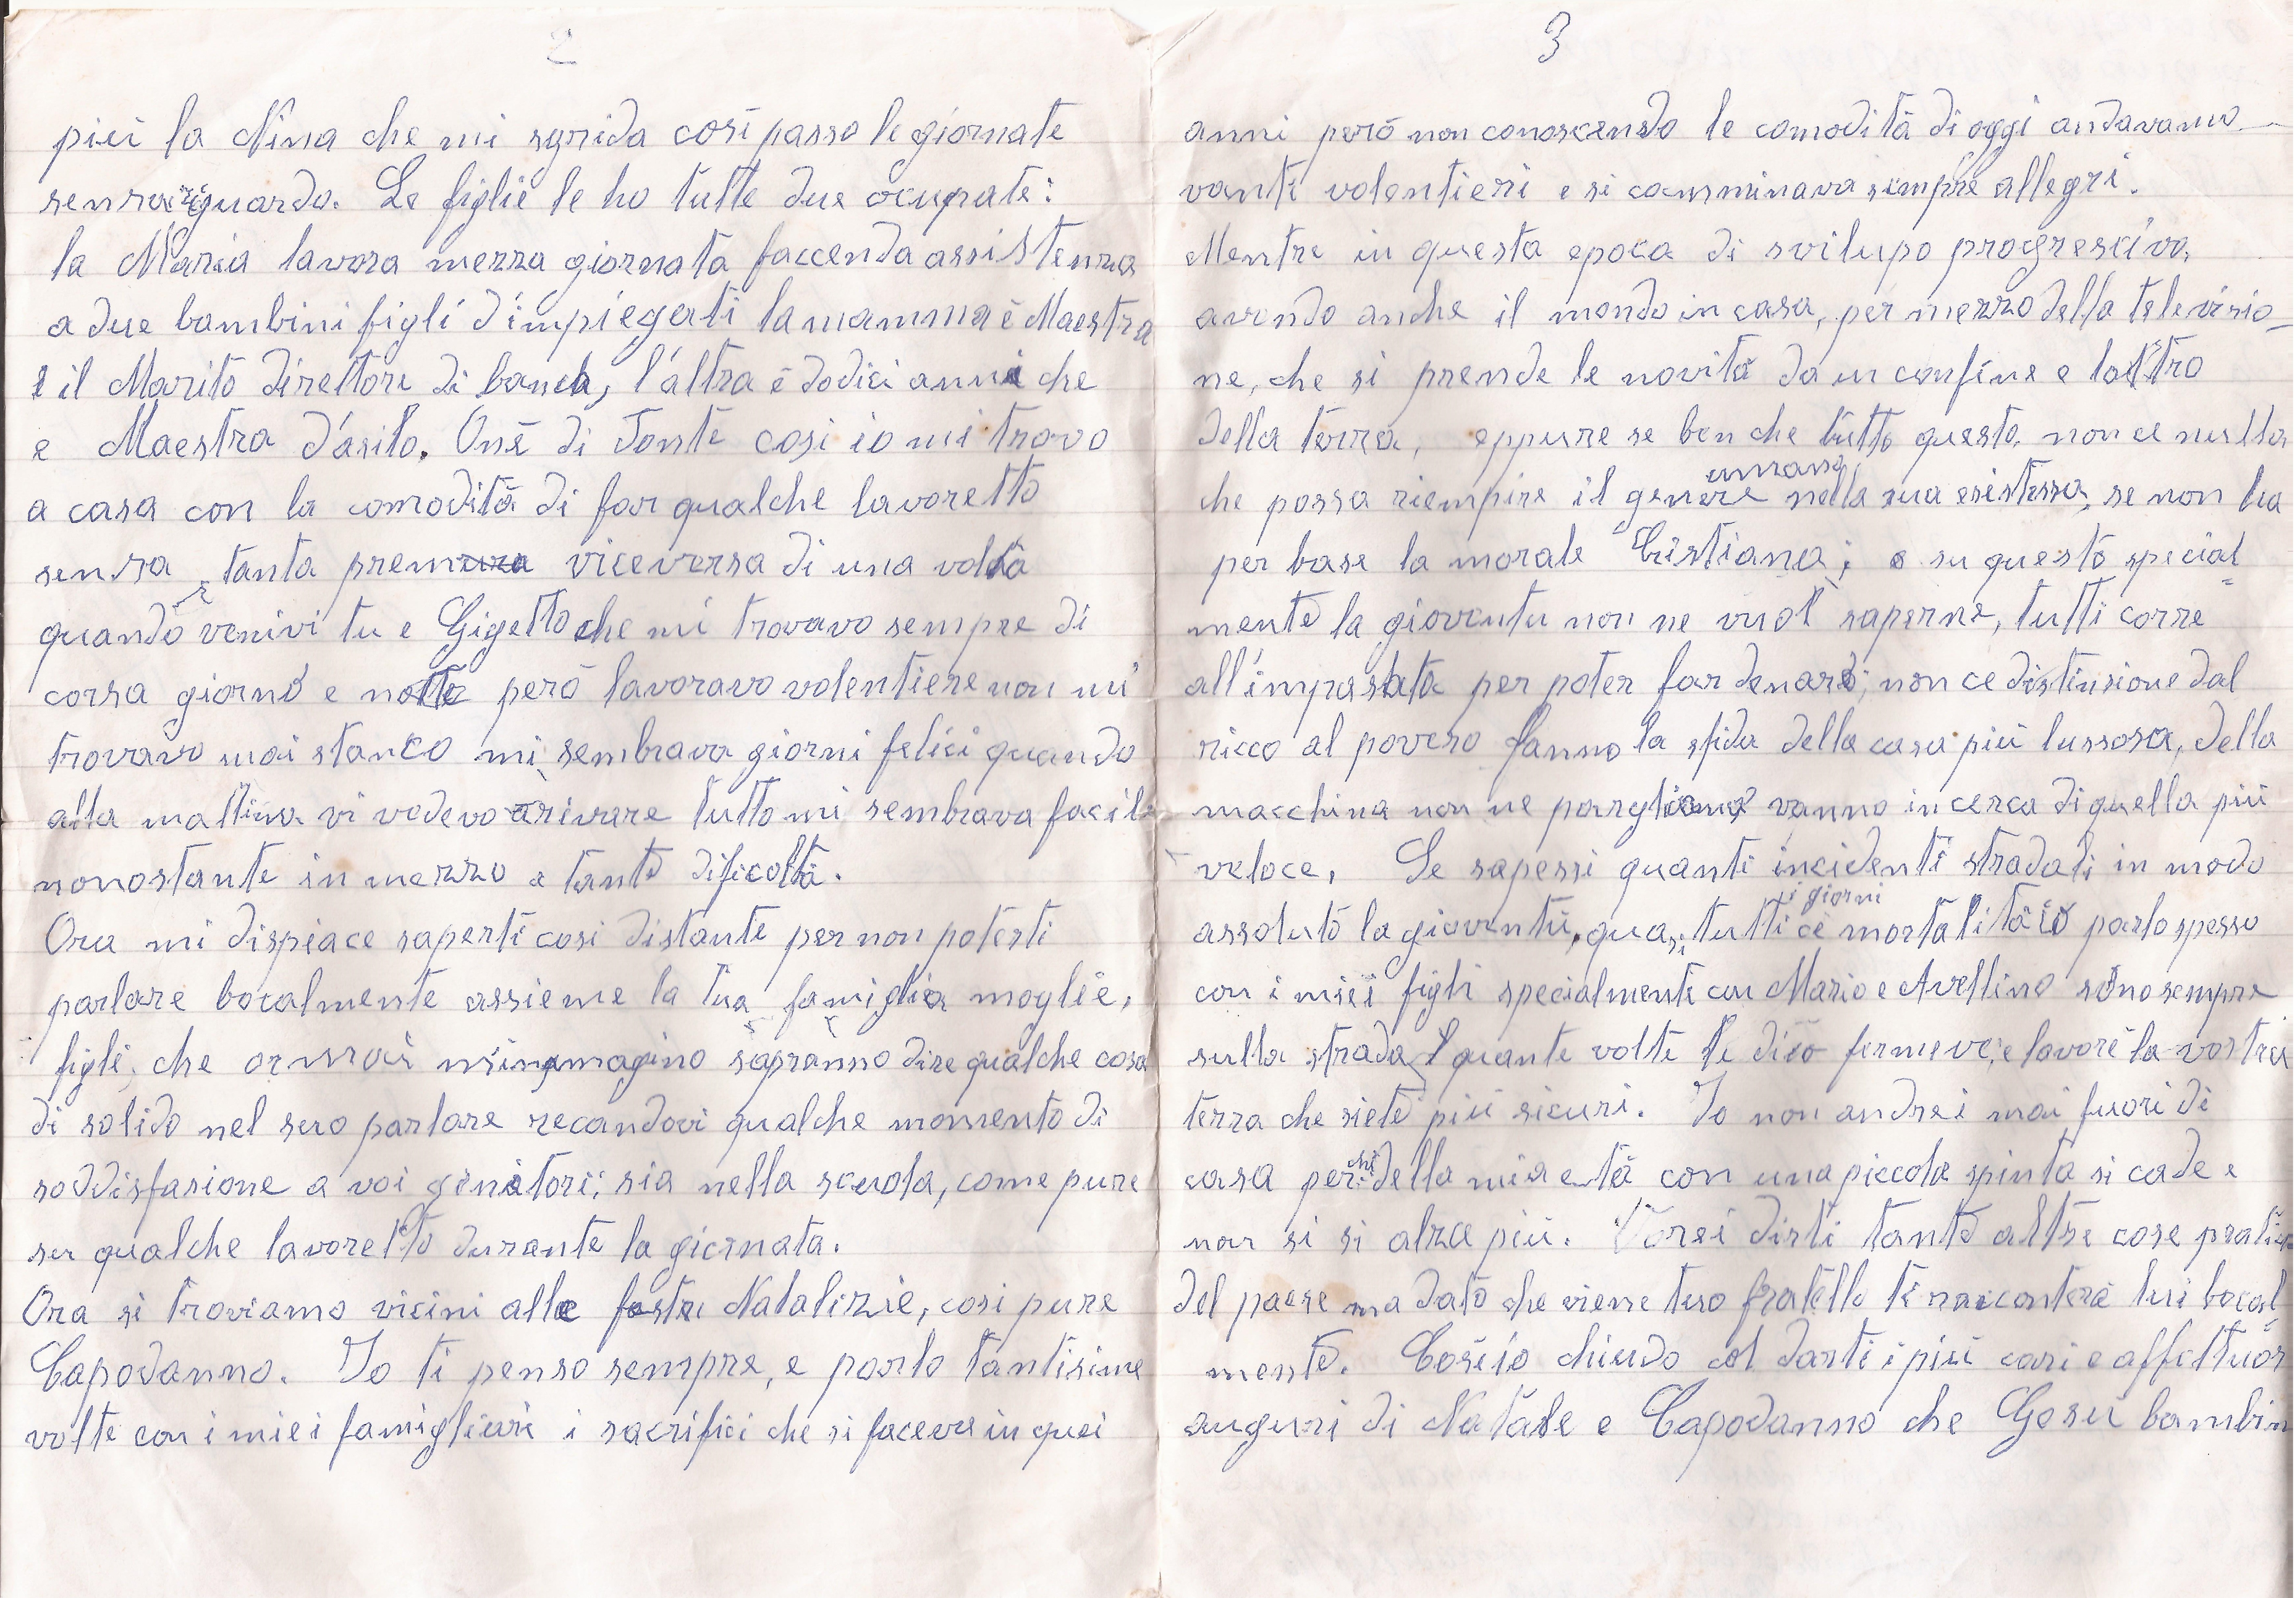 2
piú la Nina che mi sgrida cosí passo le giornate
senza riguardo. Le figlie le ho tutte due ocupate:
la Maria lavora mezza giornata faccenda assistenza
a due bambini figli d'impiegati la mamma é Maestra
e il Marito direttore di banca, l'altra é dodici anni che
e Maestra d'asilo. Oné di Fonte cosi io mi trovo
a casa con la comoditá di far qualche lavoretto
senza tanta premura viceversa di una volta
quando venivi tu e Gigetto che mi trovavo sempre di
corsa giorno e notte peró lavoravo volentiere non mi
trovavo mai stanco mi sembrava giorni felici quando
alla mattina vi vedevo arivare tutto mi sembrava facile
nonostante in mezzo a tante dificoltá.
Ora mi dispiace saperti cosi distante per non poterti
parlare bocalmente assieme la tua famiglia moglie,
figli, che ormai m'inmagino sapranno dire qualche cosa
di solido nel suo parlare recandovi qualche momento di
soddisfasione a voi genitori; sia nella scuola, come pure
su qualche lavoretto durante la giornata.
Ora si troviamo vicini alle feste Natalizie, cosi pure
Capodanno. Io ti penso sempre, e parlo tantisime
volte con i miei famigliari i sacrifici che si faceva in quei
3
anni peró non conoscendo le comoditá di oggi andavamo
vanti volentieri e si camminava sempre allegri.
Mentre in questa epoca di svilupo progresciva,
avendo anche il mondo in casa, per mezzo della televisio-
ne, che si prende le novitá da un confine e l'altro
della terra, eppure se ben che tutto questo, non ce nulla
che possa riempire il genere umano nella sua esistessa, se non ha
per base la morale Cristiana; e su questo special
mente la gioventu non ne vuol saperne, tutti corre
all'impasata per poter far denaro; non ce distinsione dal
ricco al povero fanno la sfida della casa piú lussosa, della
macchina non ne pargliamo vanno in cerca di quella piú
veloce, Se sapessi quanti incidenti stradali in modo
assoluto la gioventú, quasi tutti i giorni cè mortalitá io parlo spesso
con i miei figli specialmente con Mario e Avellino sono sempre
sulla strada e quante volte le dico fermeve, e lavoré la vostra
terra che siete piú sicuri. Io non andrei mai fuori di
casa per chi della mia etá con una piccola spinta si cade e
non si si alza piú. Vorei dirti tante altre cose pratiche
del paese ma dato che viene tuo fratello ti raccontera lui bocal
mente. Cosí io chiudo col darti i piú cari e affettuosi
auguri di Natale e Capodanno che Gesú bambin